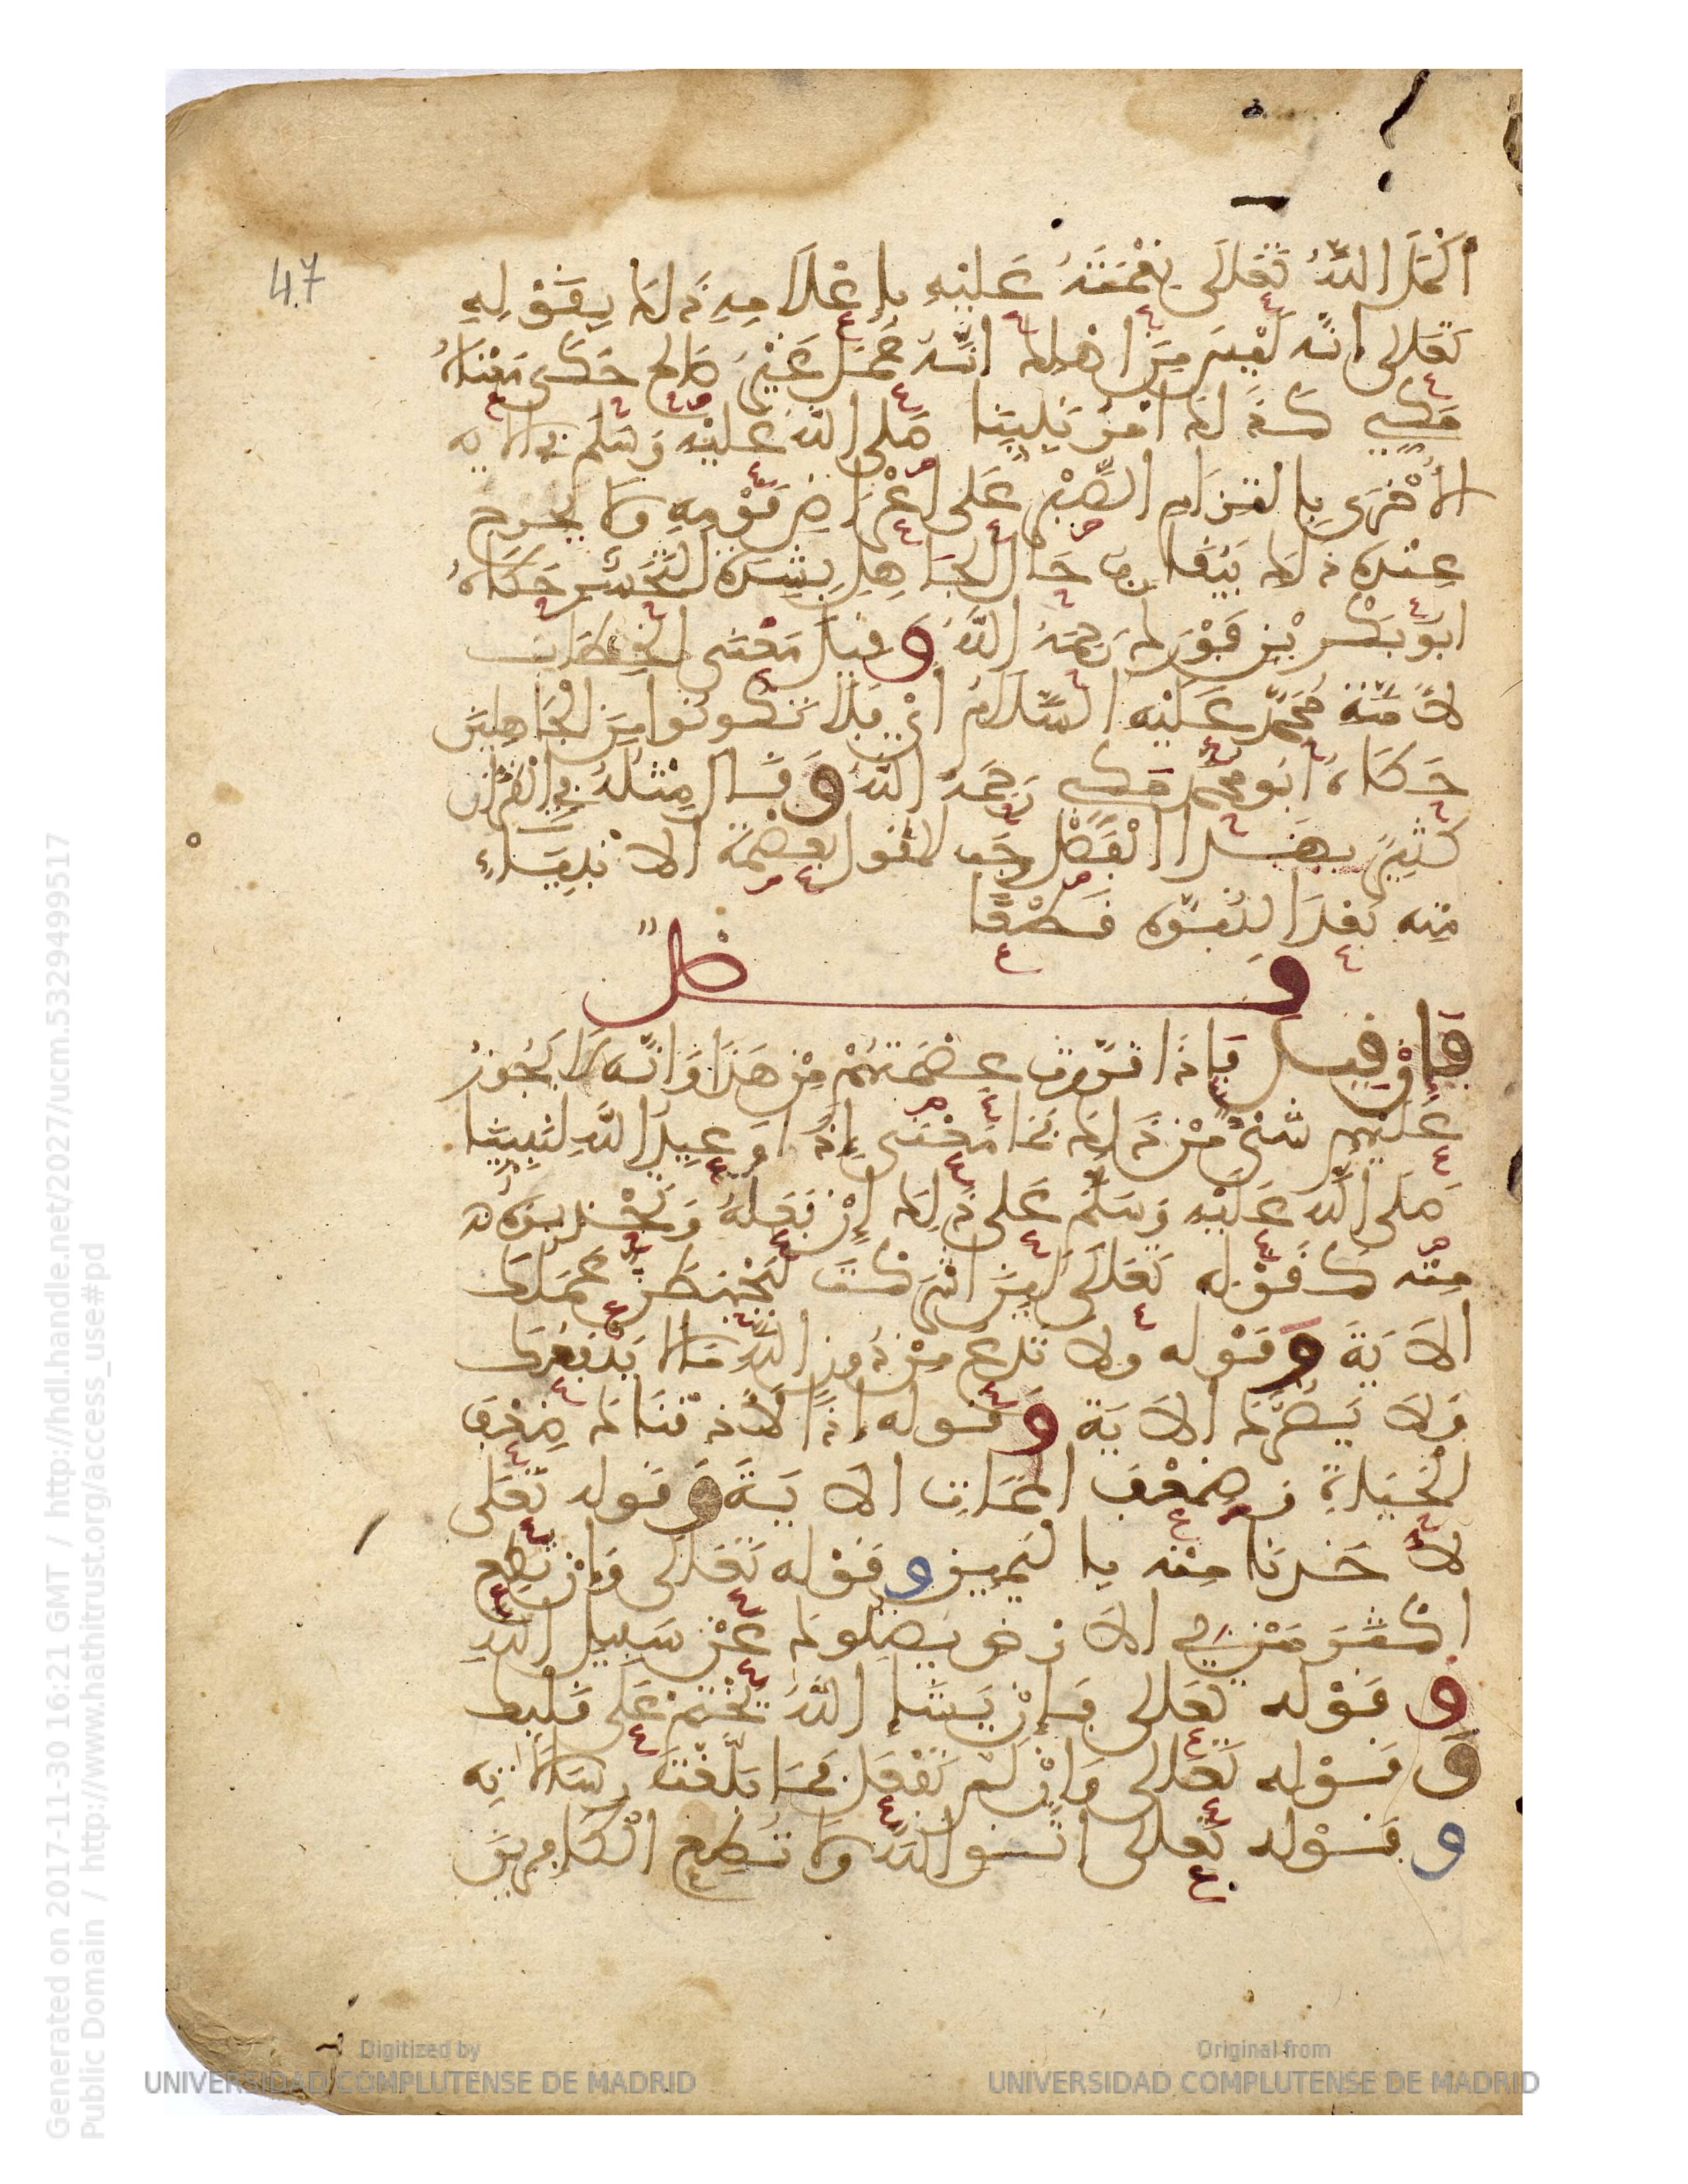 47
اكْمَلَ اللّٰهُ تَعَلَى نِعْمَتَهُ عَلَيْهِ بِإِعْلَامِهِ ذَلِكَ بِقَوْلِهِ
تَعَالى إنّه لَيْسَ مِنَ اهلِكَ انّه عَمَلٌ غَيْرُ صَالِحٍ حَكَى مَعْنَاهُ
مكي كذَلك امر نبينا صَلى الله عَليْه وَسَلم في الاية
الأُخْرَى بالتزَام الصَّبْر عَلى اعْرَاض قَوْمِهِ ولا يحرج
عِنْدَه ذلك فيقارب حَال الجَاهِل بِشدة التحَسُّر حَكَاهُ
ابو بَكْر بْن فَوْرَك رَحِمَهُ اللّهُ وقيل مَعْنى الخِطَاب
لأمّة مُحَمّد عَلَيْه السَّلَامُ ايْ فلا تَكونوا مِنَ الجَاهِلينَ
حَكَاهُ ابو محمد مَكي رَحِمَهُ اللهُ وقَال مِثلُهُ في القرآن
كثِيرٌ بهَذا الْفَضْل وجَب القول بعصْمَة الانْبِيَاءِ
مِنه بَعْدَ النبُوّة قَطْعًا
فصل
فان قيل فإذَا قررت عِصْمَتَهُمْ مِنْ هَذَا وَانّه لَا يَجُوزُ
عَلَيْهم شَيْءٌ مِنْ ذَلِكَ فمَا مَعْنى إذًا وَعِيدِ اللَّهِ لنَبِيّنَا
صَلى اللّه عَلَيْهِ وَسَلَّمَ عَلى ذَلِكَ إنْ فَعَلهُ وَتَحْذيره
مِنْه كَقَوْلِه تَعَالَى لَئِنَ اشْرَكْتَ لَيَحْبَطَنَّ عَمَلُكَ
الاَيَةَ وَقَوْله ولا تَدع مِنْ دُون اللّهِ مَالا يَنْفَعُكَ
وَلا يَضُرُّكَ الاَيَة وَقَوله إذًا لأذقْنَاكَ ضِعْفَ
الْحَيَاةِ وَضِعْفَ المَمَاتِ الايَةَ وَقوله تَعَلى
لاخَذنَا مِنْه بِاليَمِين وَقَوْله تَعَالى وَإنْ تُطِعَ
اكْثَرَ مَنْ في الاَرْض يضلوكَ عَنْ سَبِيلِ اللّهِ
وَقَوْله تَعَالى فَإنْ يَشَإ اللّهُ يَخْتِمْ عَلَى قَلْبِكَ
وَقَوْله تَعَالى وَإنْ لَم تَفْعَل فَمَا بَلَّغْتَ رِسَالَاتِه
وَقَوْله تَعَالى اتّق اللّهَ وَلَا تُطِعِ الْكَافِرِينَ
Generated on 2017-11-30 16:21 GMT / http://hdl.handle.net/2027/ucm.5329499517
Public Domain / http://www.hathitrust.org/access_use#pd
Digitized by
UNIVERSIDAD COMPLUTENSE DE MADRID
Original from
UNIVERSIDAD COMPLUTENSE DE MADRID